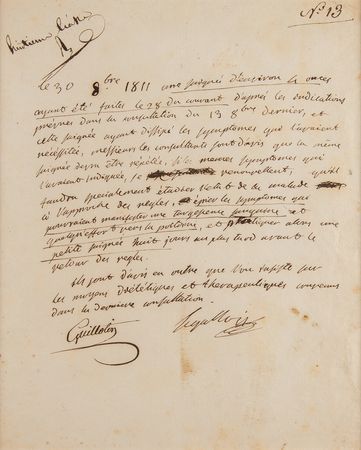 N.º 13
huitieme
Le 30 8bre 1811 une saignée d'environ 10 onces
ayant été faite le 28 du courant d'après les indications
prévues dans la consultation du 13 8bre dernier, et
cette saignée ayant dissipé les symptomes qui l'avaient
nécessitée, messieurs les consultants sont d'avis que la même
saignée devra être répétée, si les memes symptomes qui
l'avaient indiquée, se renouvellent, qu'il
faudra specialement étudier l'etat de la malade
à l'approche des regles, épier les symptomes qui
pourraient manifester une turgescence sanguine et
quelqu'effort vers la poitrine, et pratiquer alors une
petite saignée huit jours au plus tard avant le
retour des regles.
Ils sont d'avis en outre que l'on insiste sur
les moyens diététiques et thérapeutiques convenus
dans la derniere consultation.
Guillotin